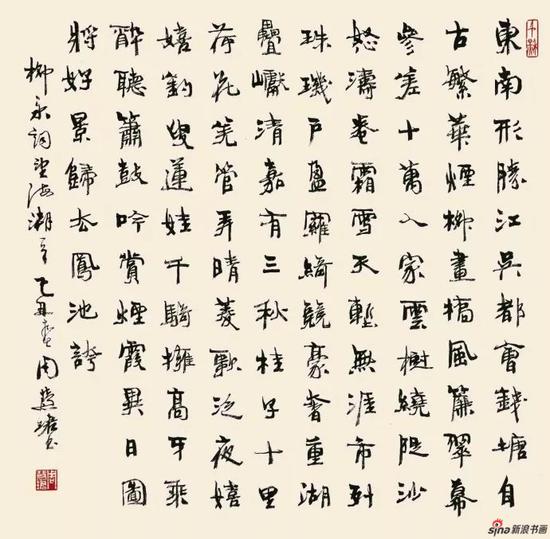 東南形勝江吳都會錢塘自
古繁華煙柳畫橋風簾翠幕
參差十萬人家雲樹繞隄沙
怒濤卷霜雪天塹無涯市列
珠璣戶盈羅綺競豪奢重湖
疊巘清嘉有三秋桂子十里
荷花羌管弄晴菱歌泛夜嬉
嬉釣叟蓮娃千騎擁高牙乘
醉聽簫鼓吟賞煙霞異日圖
將好景歸去鳳池誇
柳永詞望海潮 周慧珺書
sina新浪书画